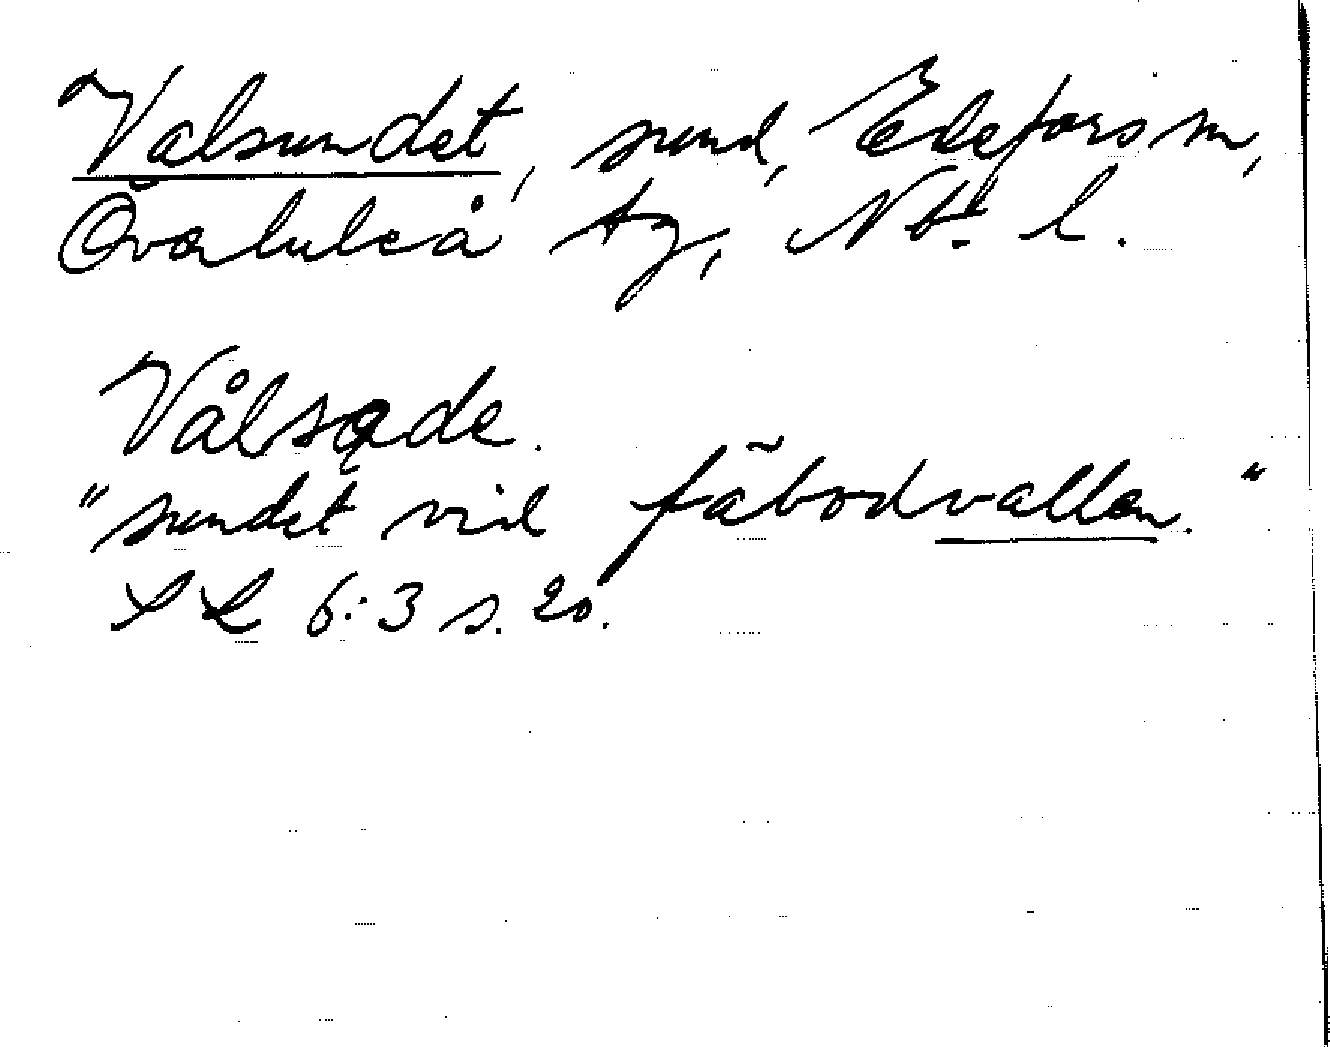 Valsundet, sund, Edefors sn,
Överluleå tg, Nb. l.
Vålsǫde.
"sundet vid fäbodvallen."
SL 6:3 s. 20.